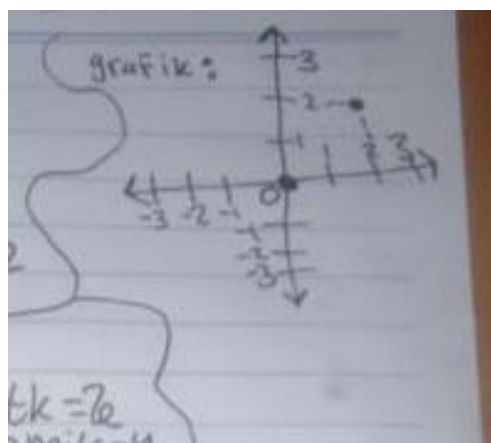 grafik:
3
2
1
1 2 3
0
-3 -2 -1
-1
-2
-3
2
tk = 2